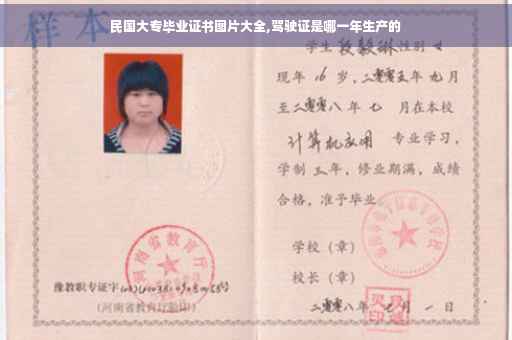 民国大专毕业证书图片大全,驾驶证是哪一年生产的
样本
学生 段毅琳 性别 女
现年 16 岁，二零零五年 九月
至二零零八年 七 月在本校
计算机应用 专业学习，
学制 三 年，修业期满，成绩
合格，准予毕业。
学校（章）
校长（章）
二零零八年 七 月 一 日
河南省教育厅
豫教职专证字
(河南省教育厅验印)